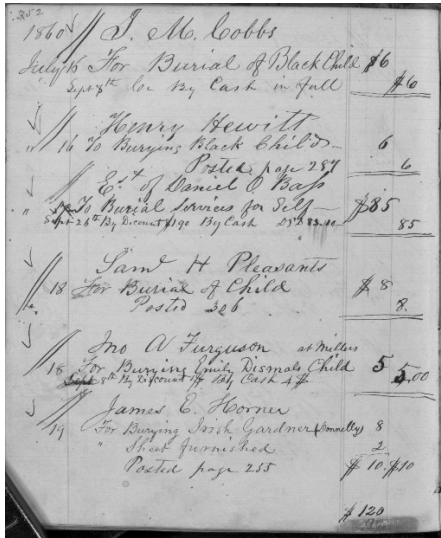 252
1860 J. M. Cobbs
July 15 For Burial of Black Child $6
Sept 8th By Cash in full $6
Henry Hewitt
" 16 To Burying Black Child 6
Posted page 287 6
Est of Daniel O Bass
" To Burial Services for Self $85
Sept 26th By Discount $1.90 By Cash 85
Saml H Pleasants
18 For Burial of Child $8
Posted 306 8.
Jno A Furguson at Millers
18 For Burying Emily Dismals Child 5 5,00
Sept 8th By Discount 1$ By Cash 4$
James E. Horner
19 For Burying Irish Gardner (Donnelly) 8
" Sheet furnished 2
Posted page 255 $10. $10
$120